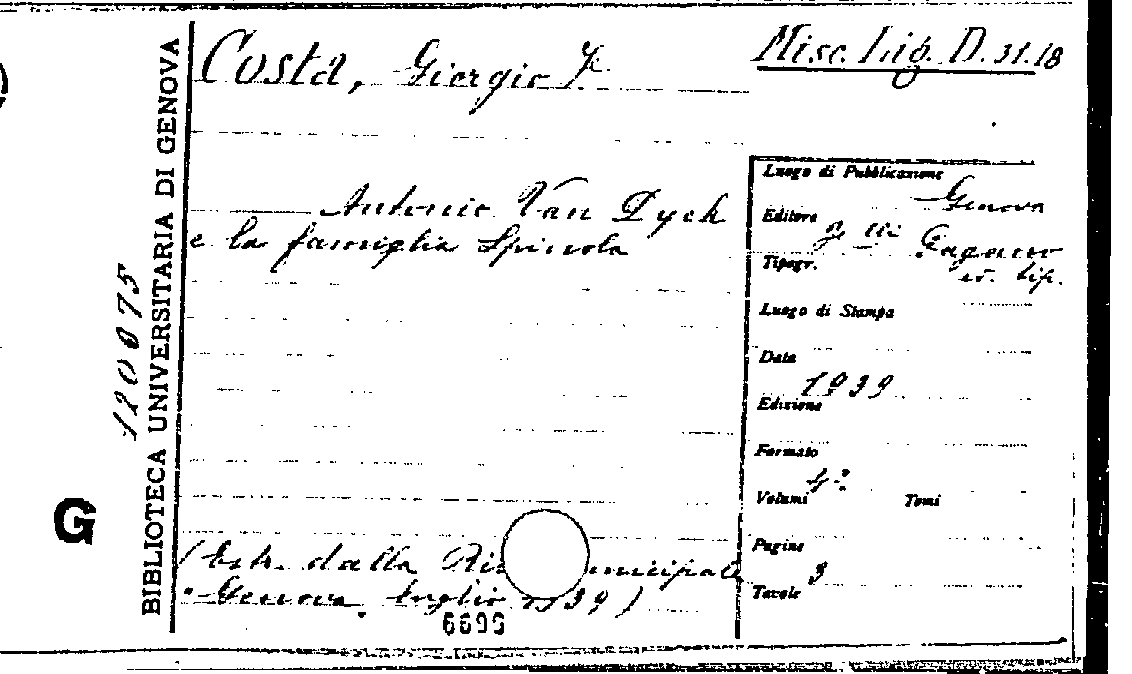 Costa, Giorgio
Misc. Lig. D. 31.18
Antonio Van Dych
e la famiglia Spinola
(Estr. dalla Ri unicipale
"Genova luglio 1939)
6695
BIBLIOTECA UNIVERSITARIA DI GENOVA
120075
G
Luogo di Pubblicazione Genova
Editore F.lli Pagano
Tipogr. ed. tip.
Luogo di Stampa
Data 1939
Edizione
Formato 4º
Volumi Tomi
Pagine 3
Tavole